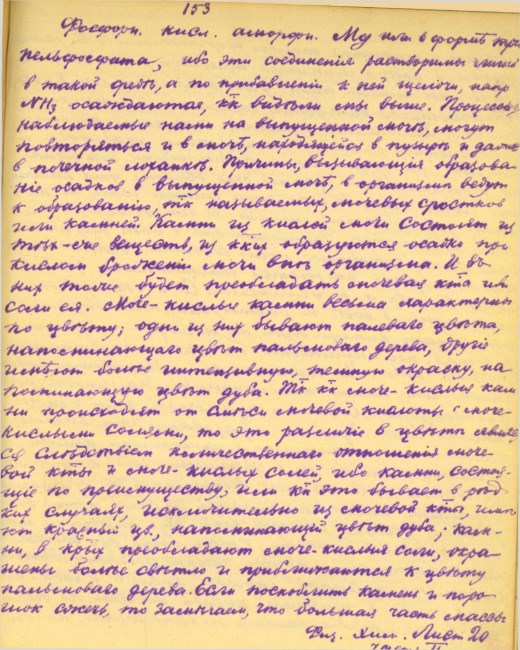 153
Фосфорн. кисл. аморфн. Mg или в формѣ
пельфосфата, ибо эти соединенія растворимы лишь
в такой средѣ, а по прибавленіи к ней щелочи, напр
NH₃ осаждаются, кк видѣли мы выше. Процессы,
наблюдаемые нами на выпущенной мочѣ, могут
повторяться и в мочѣ, находящейся в пузырѣ и далѣе
в почечной лоханкѣ. Причины, вызывающія образова-
ніе осадков в выпущенной мочѣ, в организмѣ ведут
к образованію, тк называемых, мочевых сростков
или камней. Камни из кислой мочи состоят из
тѣх-же веществ, из кких образуются осадки при
кислом броженіи мочи внѣ организма. И въ
них также будет преобладать мочевая кта и
соли ея. Моче-кислые камни весьма характерны
по цвѣту; одни из них бывают палеваго цвѣта,
напоминающаго цвѣт пальмоваго дерева, другіе
имѣют болѣе интенсивную, темную окраску, на
поминающую цвѣт дуба. Тк кк моче-кислые кам
ни происходят от смѣси мочевой кислоты с моче-
кислыми солями, то это различіе в цвѣтѣ являет
ся слѣдствіем количественнаго отношенія моче-
вой кты и моче-кислых солей, ибо камни, состоя-
щіе по преимуществу, или кк это бывает в рѣд
ких случаях, исключительно из мочевой кты, имѣ-
ют красный цв., напоминающій цвѣт дуба; кам-
ни, в крых преобладают моче-кислыя соли, окра-
шены болѣе свѣтло и приближаются к цвѣту
пальмоваго дерева. Если поскоблить камень и поро-
шок сжечь, то замѣчаем, что большая часть массы
Физ. Хим. Лист 20